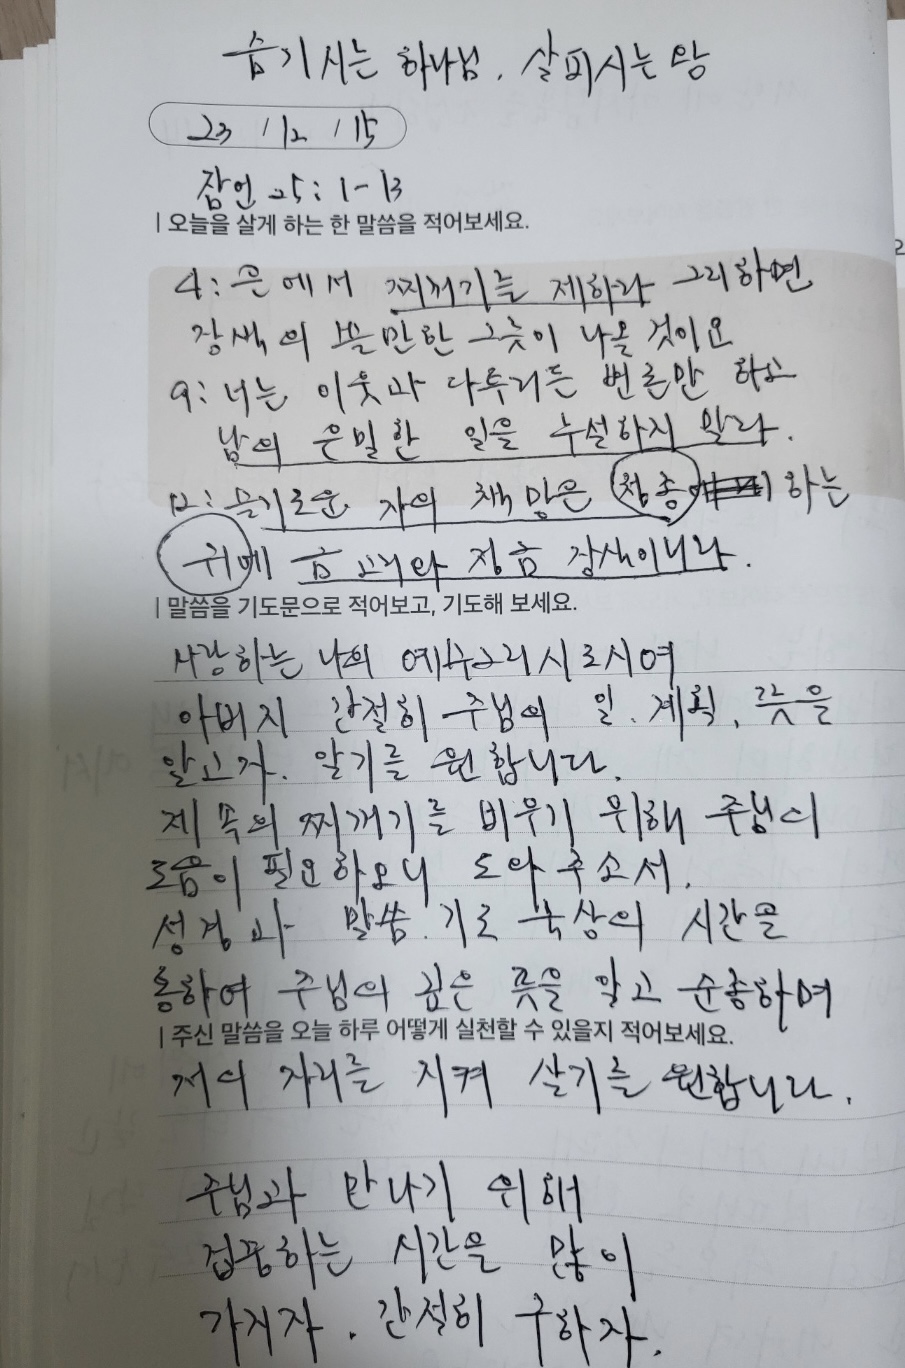 숨기시는 하나님, 살피시는 왕
23 / 12 / 15
잠언 25 : 1 - 13
| 오늘을 살게 하는 한 말씀을 적어보세요.
4 : 은에서 찌꺼기를 제하라 그리하면
장색의 쓸 만한 그릇이 나올 것이요
9 : 너는 이웃과 다투거든 변론만 하고
남의 은밀한 일을 누설하지 말라.
12 : 슬기로운 자의 책망은 청종하는
귀에 금고리와 정금 장식이니라.
| 말씀을 기도문으로 적어보고, 기도해 보세요.
사랑하는 나의 예수그리시로시여
아버지 간절히 주님의 일. 계획. 뜻을
알고자. 알기를 원합니다.
제 속의 찌꺼기를 비우기 위해 주님의
도움이 필요하오니 도와주소서.
성경과 말씀. 기도 묵상의 시간을
통하여 주님의 깊은 뜻을 알고 순종하며
| 주신 말씀을 오늘 하루 어떻게 실천할 수 있을지 적어보세요.
저의 자리를 지켜 살기를 원합니다.
주님과 만나기 위해
집중하는 시간을 많이
가지자. 간절히 구하자.